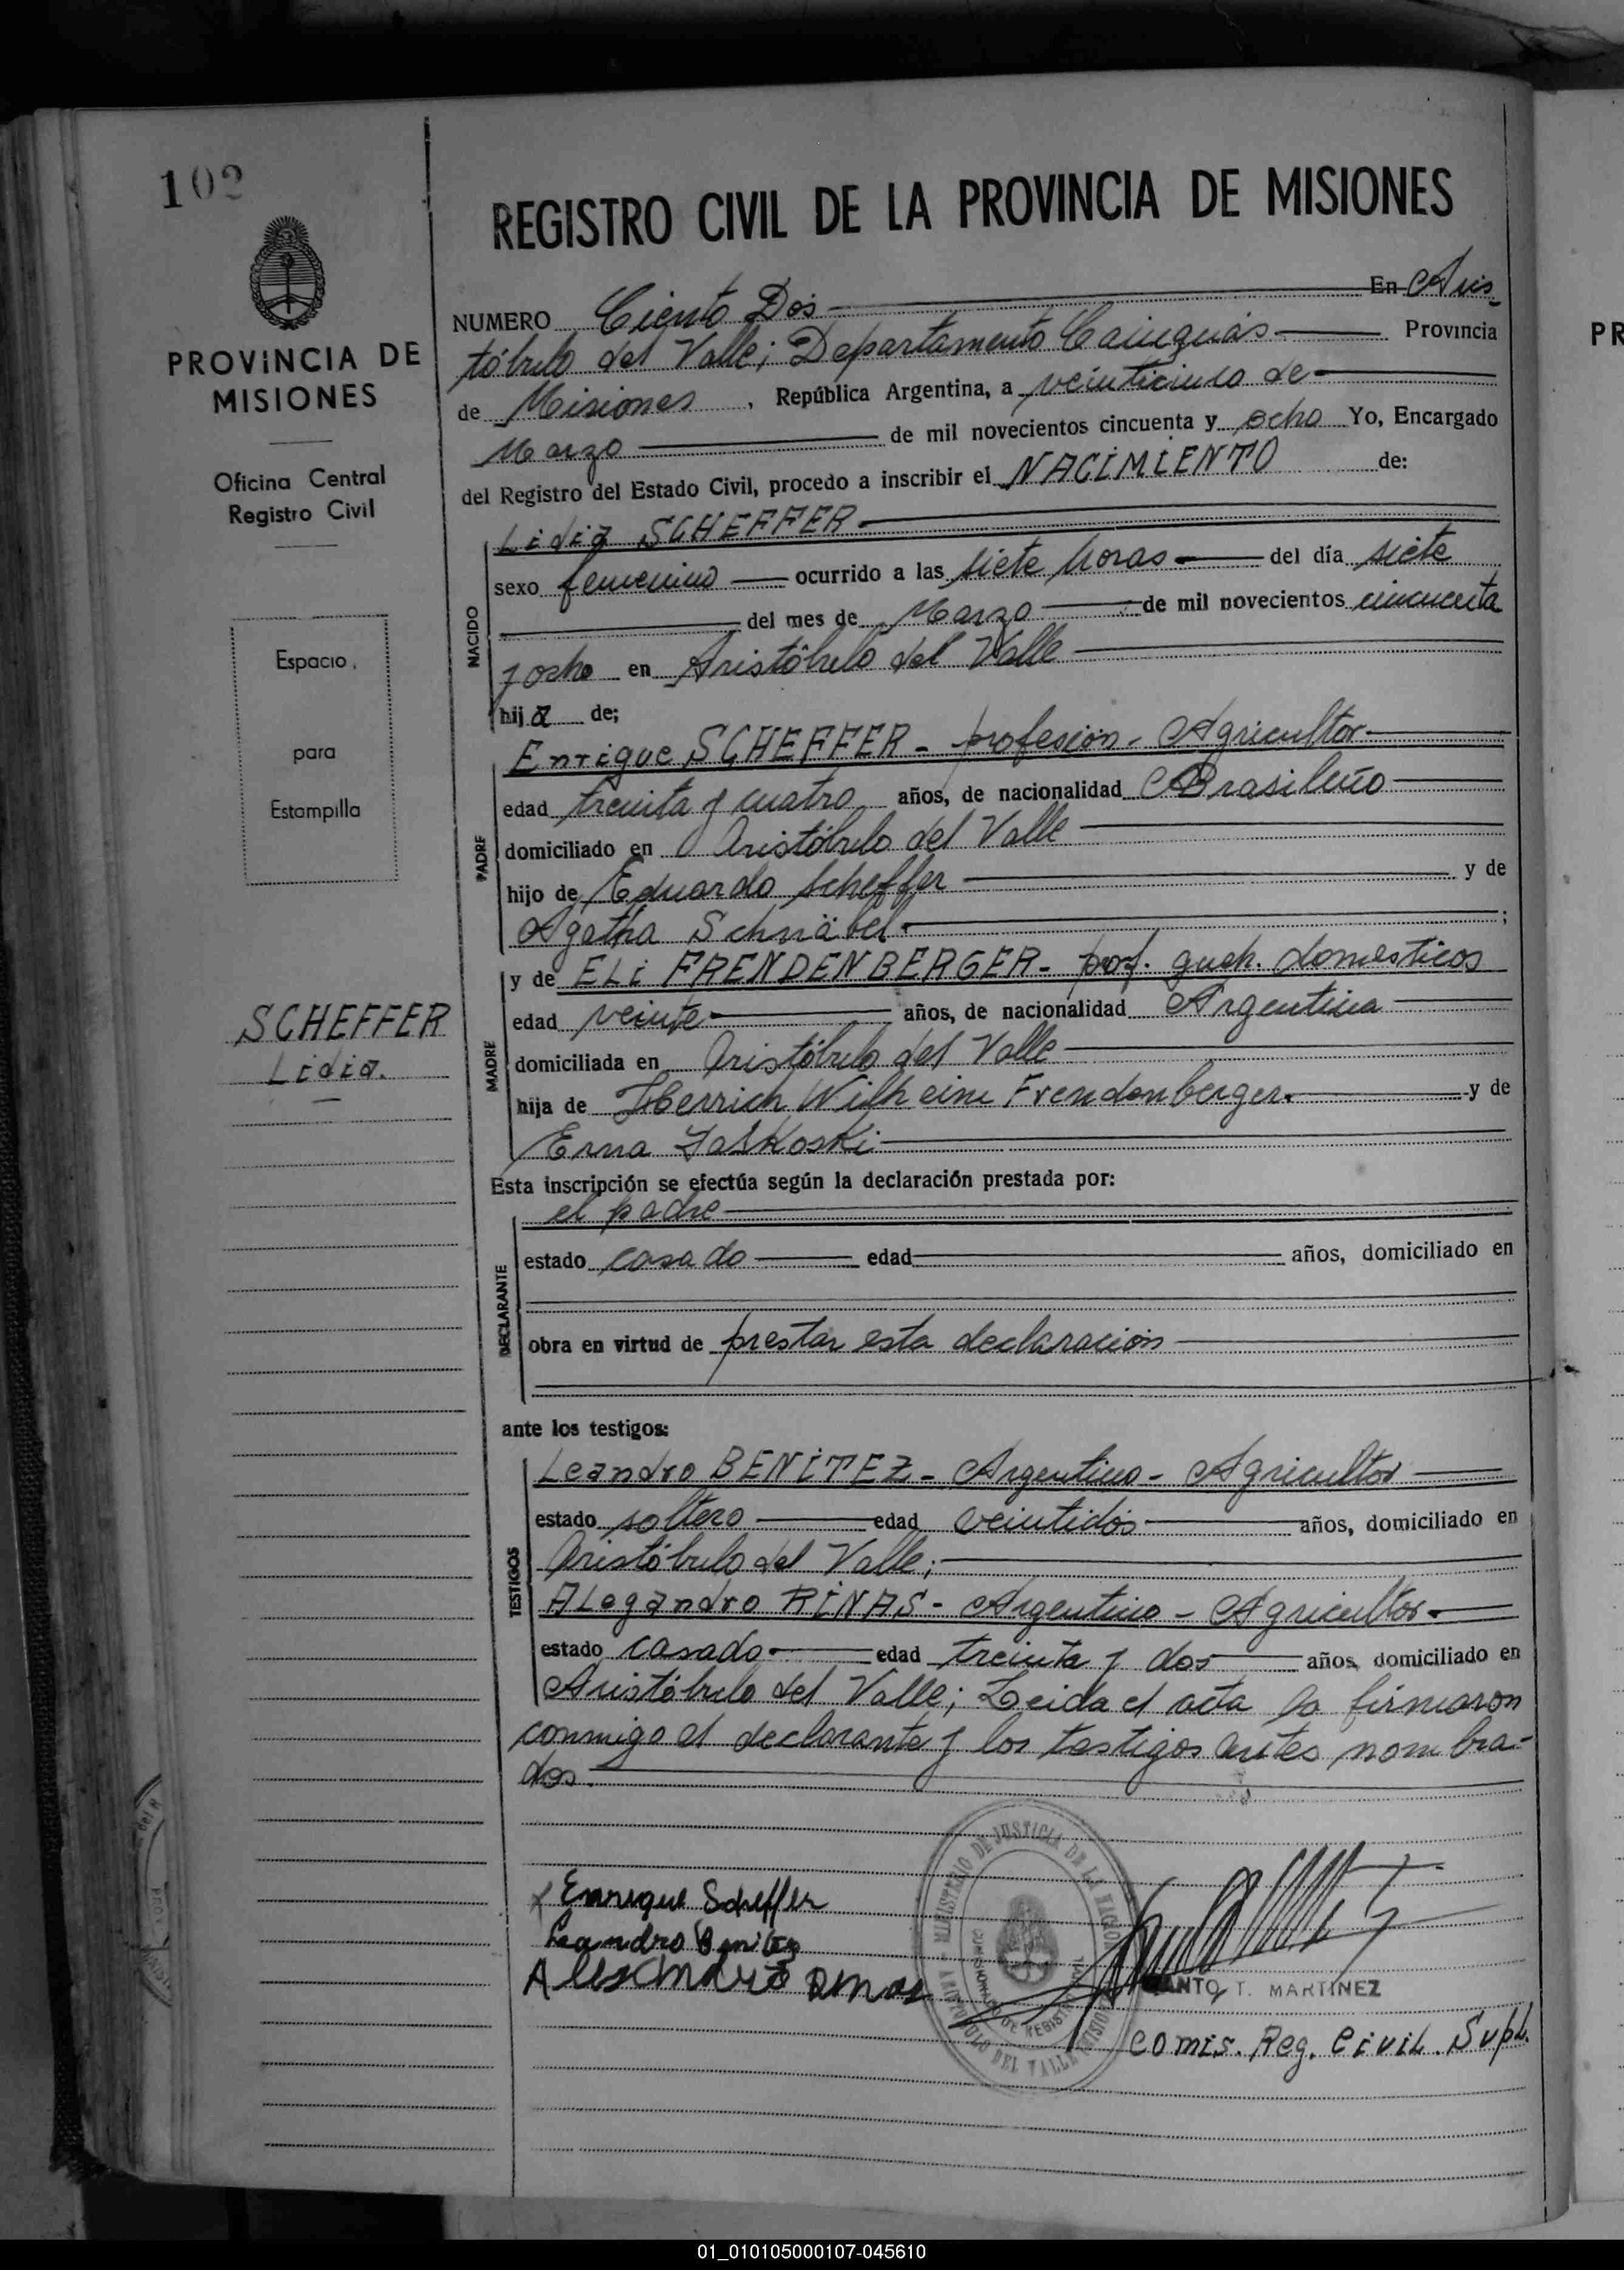 102
REGISTRO CIVIL DE LA PROVINCIA DE MISIONES
PROVINCIA DE
MISIONES
Oficina Central
Registro Civil
Espacio
para
Estampilla
SCHEFFER
Lidia.
NUMERO Ciento Dos En Aris-
tóbulo del Valle; Departamento Cainguás Provincia
de Misiones, República Argentina, a veinticinco de
Marzo de mil novecientos cincuenta y ocho Yo, Encargado
del Registro del Estado Civil, procedo a inscribir el NACIMIENTO de:
NACIDO
Lidia SCHEFFER
sexo femenino ocurrido a las siete horas del día siete
del mes de Marzo de mil novecientos cincuenta
y ocho en Aristóbulo del Valle
hija de;
PADRE
Enrique SCHEFFER - profesión - Agricultor
edad treinta y cuatro años, de nacionalidad Brasileño
domiciliado en Aristóbulo del Valle
hijo de Eduardo Scheffer y de
Agatha Schnäbel ;
MADRE
y de ELi FRENDENBERGER - prof. queh. domésticos
edad veinte años, de nacionalidad Argentina
domiciliada en Aristóbulo del Valle
hija de Wilheim Frendenberger. y de
Erna Jaskoski
Esta inscripción se efectúa según la declaración prestada por:
DECLARANTE
el padre
estado casado edad años, domiciliado en
obra en virtud de prestar esta declaración
ante los testigos:
TESTIGOS
Leandro BENITEZ - Argentino - Agricultor
estado soltero edad veintidós años, domiciliado en
Aristóbulo del Valle;
ALegandro RINAS - Argentino - Agricultor
estado casado edad treinta y dos años, domiciliado en
Aristóbulo del Valle; Leida el acta la firmaron
conmigo el declarante y los testigos antes nombra-
dos.
Enrique Scheffer
Leandro Benitez
MINISTERIO DE JUSTICIA DE LA NACION
ARISTOBULO DEL VALLE
ANTO T. MARTINEZ
comis. Reg. Civil. Supl.
01_010105000107-045610